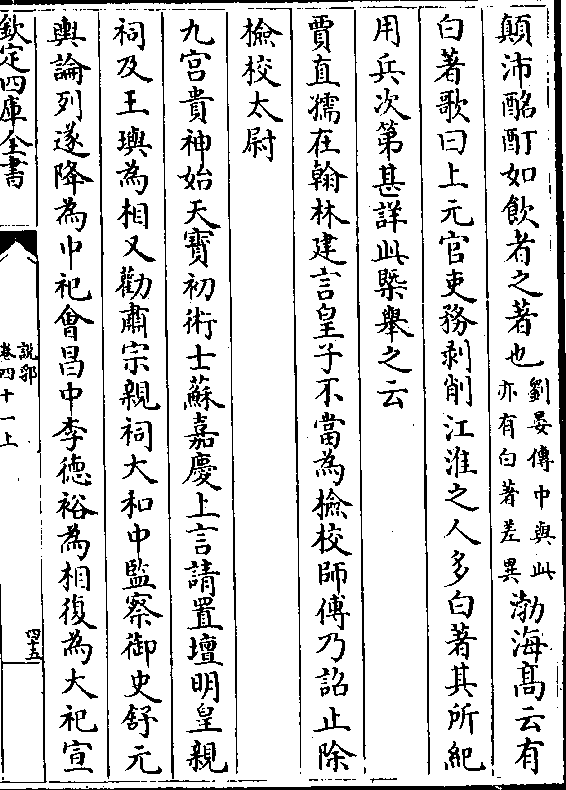 顛沛酩酊如飲者之著也劉晏傳中與此亦有白著差異渤海髙云有
白著歌曰上元官吏務剥削江淮之人多白著其所紀
用兵次第甚詳此槩舉之云
賈直孺在翰林建言皇子不當為檢校師傅乃詔止除
檢校太尉
九宫貴神始天寳初術士蘇嘉慶上言請置壇明皇親
祠及王璵為相又勸肅宗親祠大和中監察御史舒元
輿論列遂降為中祀會昌中李德裕為相復為大祀宣
欽定四庫全書
說郛
卷四十一上
四十五